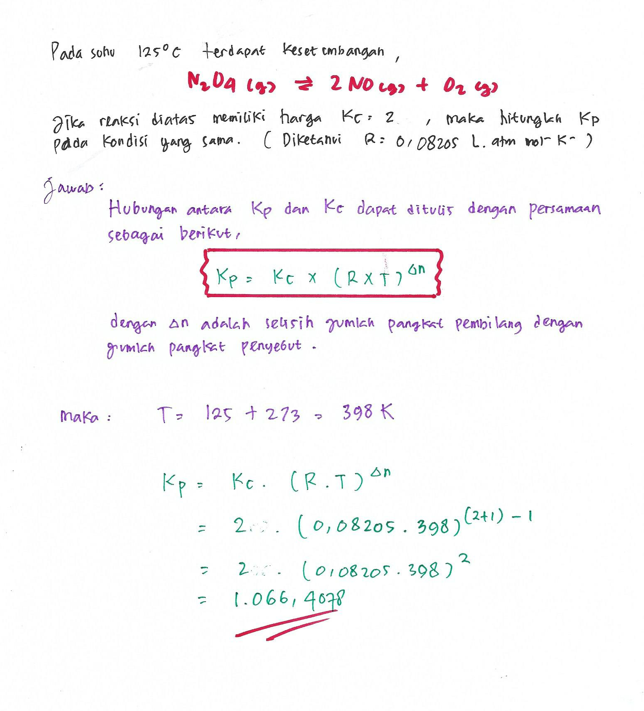 Pada suhu 125°C terdapat kesetimbangan,
N2O4 (g) ⇌ 2 NO (g) + O2 (g)
Jika reaksi diatas memiliki harga Kc = 2 , maka hitunglah Kp
pada kondisi yang sama. ( Diketahui R = 0,08205 L. atm mol- K- )
Jawab :
Hubungan antara Kp dan Kc dapat ditulis dengan persamaan
sebagai berikut,
Kp = Kc x (R x T)^Δn
dengan Δn adalah selisih jumlah pangkat pembilang dengan
jumlah pangkat penyebut .
maka : T = 125 + 273 = 398 K
Kp = Kc . (R . T)^Δn
= 2 . (0,08205 . 398)^(2+1) - 1
= 2 . (0,08205 . 398)^2
= 1.066,4078